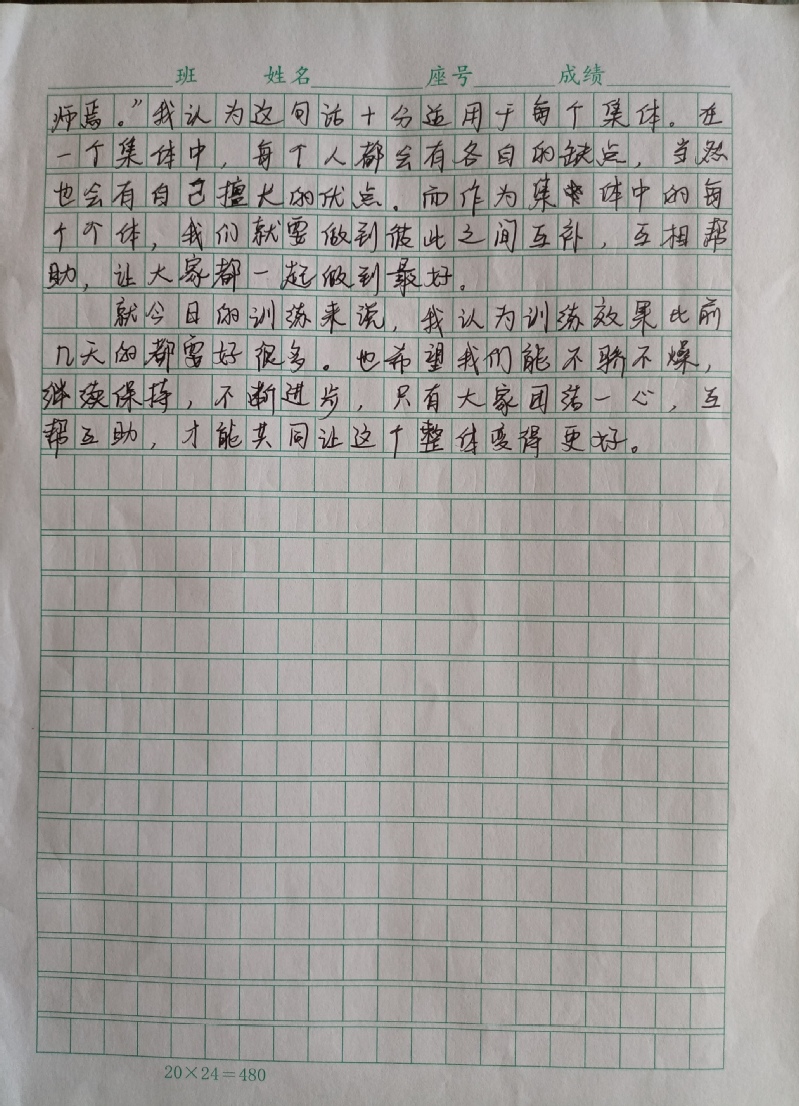 班 姓名 座号 成绩
师焉。”我认为这句话十分适用于每个集体。在
一个集体中，每个人都会有各自的缺点，当然
也会有自己擅长的优点。而作为集体中的每
个个体，我们就要做到彼此之间互补，互相帮
助，让大家都一起做到最好。
就今日的训练来说，我认为训练效果比前
几天的都要好很多。也希望我们能不骄不燥，
继续保持，不断进步，只有大家团结一心，互
帮互助，才能共同让这个整体变得更好。
20×24=480